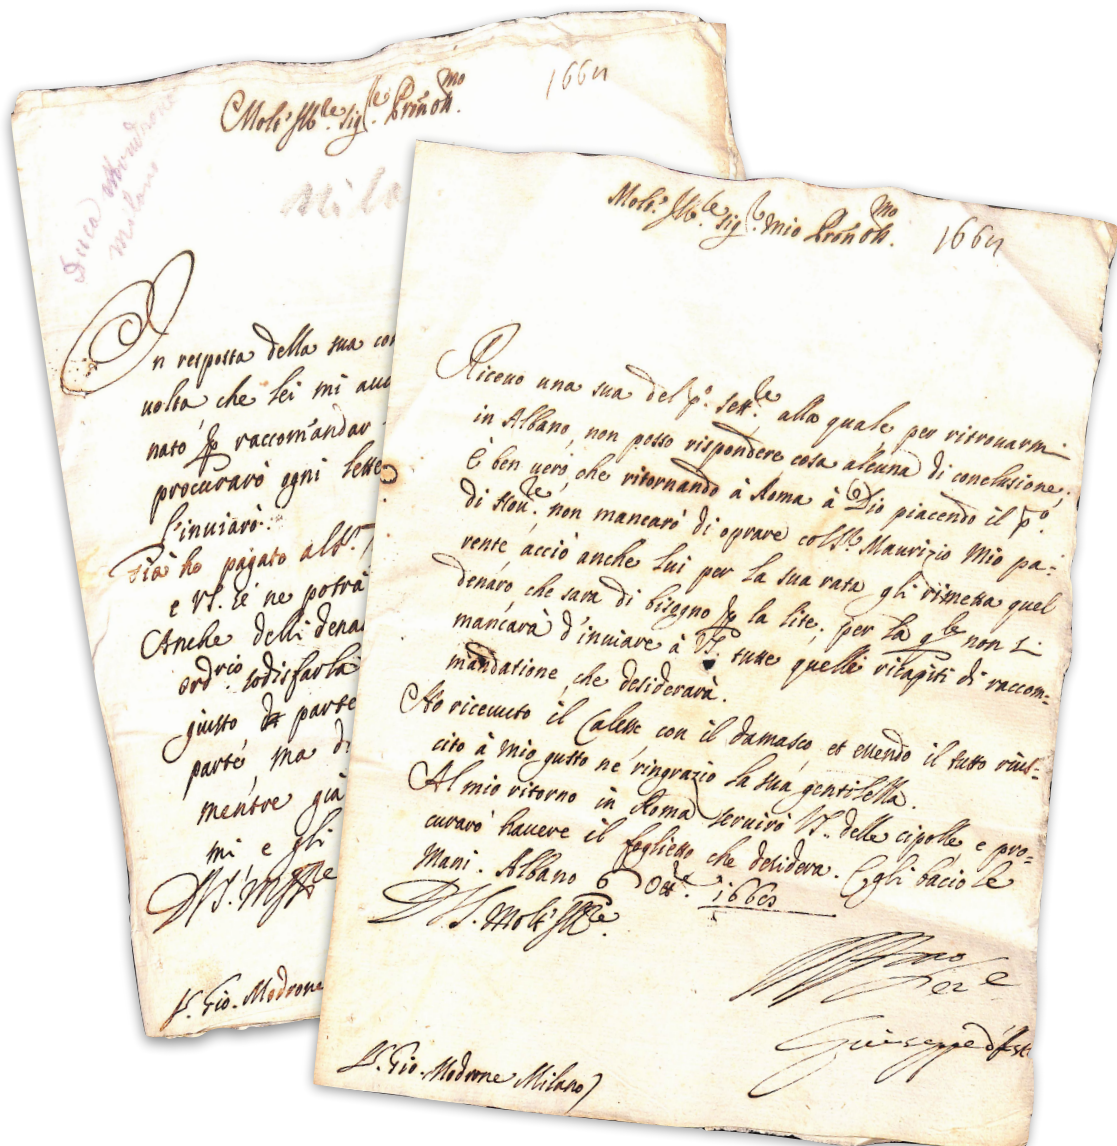 Duca
Milano
Molt' Ill.re Sig.re Pron Oss.mo
166
Mila
In resposta della sua con
uolta che lei mi auu
nato raccom'andar
procurarò ogni lette
l'inuiarò.
Già ho pagato
e VS. se ne potrà
Anche delli dena
sodisfarla
giusto parte
parte, ma di
mentre già
mi e gli
D VS. M
S. Gio. Modrone
Molt. Ill.re Sig.re mio Pron Oss.mo
166
Riceuo una sua del p.o Sett.e alla quale per ritrouarmi
in Albano, non posso rispondere cosa alcuna di conclusione,
È ben uero, che ritornando à Roma à Dio piacendo il p.o
di Nou.e non mancarò di oprare col S.r Maurizio Mio pa:
rente acciò anche lui per la sua rata gli rimetta quel
denaro che sara di bisogno la lite; per la q.le non si
mancarà d'inuiare à VS. tutte quelle ricapiti di raccom-
mandatione che desiderarà.
Ho riceuuto il Calesse con il damasco, et essendo il tutto rius-
cito à mio gusto ne ringrazio la sua gentilezza.
Al mio ritorno in Roma seruirò VS. delle cipolle e pro=
curarò hauere il foglietto che desidera. E gli bacio le
Mani. Albano 6 Ott.e 166
D VS. Molt' Ill.re
Giuseppe d'
S. Gio. Modrone Milano